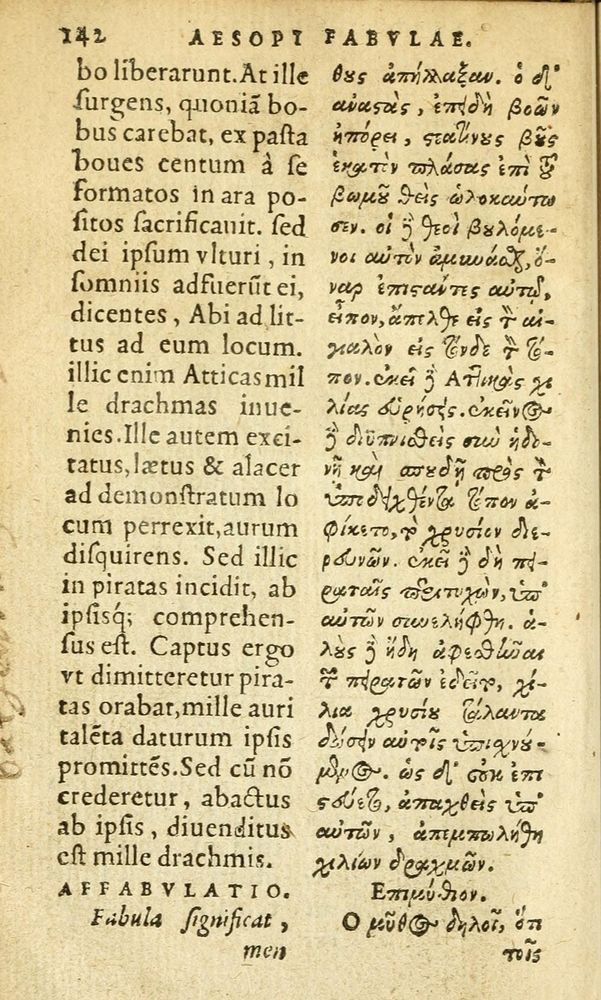 142 AESOPI FABVLAE.
bo liberarunt. At ille
surgens, quoniã bo-
bus carebat, ex pasta
boues centum à se
formatos in ara po-
sitos sacrificauit. sed
dei ipsum vlturi, in
somniis adfuerũt ei,
dicentes, Abi ad lit-
tus ad eum locum.
illic enim Atticas mil
le drachmas inue-
nies. Ille autem exci-
tatus, lætus & alacer
ad demonstratum lo
cum perrexit, aurum
disquirens. Sed illic
in piratas incidit, ab
ipsisq; comprehen-
sus est. Captus ergo
vt dimitteretur pira-
tas orabat, mille auri
talẽta daturum ipsis
promittẽs. Sed cũ nõ
crederetur, abactus
ab ipsis, diuenditus
est mille drachmis.
AFFABVLATIO.
Fabula significat,
men
θους ἀπήλλαξαν. ὁ δ'
ἀναστὰς, ἐπειδὴ βοῶν
ἠπόρει, σταιτίνους βοῦς
ἑκατὸν πλάσας ἐπὶ τοῦ
βωμοῦ θεὶς ὡλοκαύτω
σεν. οἱ δὲ θεοὶ βουλόμε-
νοι αὐτὸν ἀμύναθαι, ὄ-
ναρ ἐπιστάντες αὐτῷ,
εἶπον, ἄπελθε εἰς τὸν αἰ-
γιαλὸν εἰς τόνδε τὸν τό-
πον. ἐκεῖ γὰρ Ἀττικὰς χι
λίας εὑρήσεις. ἐκεῖνος
δὲ διϋπνισθεὶς σὺν ἡδο-
νῇ καὶ σπουδῇ πρὸς τὸν
ὑποδειχθέντα τόπον ἀ-
φίκετο, τὸ χρυσίον διε-
ρευνῶν. ἐκεῖ δὲ δὴ πει-
ραταῖς περιτυχὼν, ὑπ'
αὐτῶν συνελήφθη. ἁ-
λοὺς δὲ ἤδη ἀφεθῆναι
τῶν πειρατῶν ἐδεῖτο, χί-
λια χρυσίου τάλαντα
δώσειν αὐτοῖς ὑπισχνού-
μενος. ὡς δ' οὐκ ἐπι
στεύετο, ἀπαχθεὶς ὑπ'
αὐτῶν, ἀπεμπωλήθη
χιλίων δραχμῶν.
Ἐπιμύθιον.
Ὁ μῦθος δηλοῖ, ὅτι
τοῖς